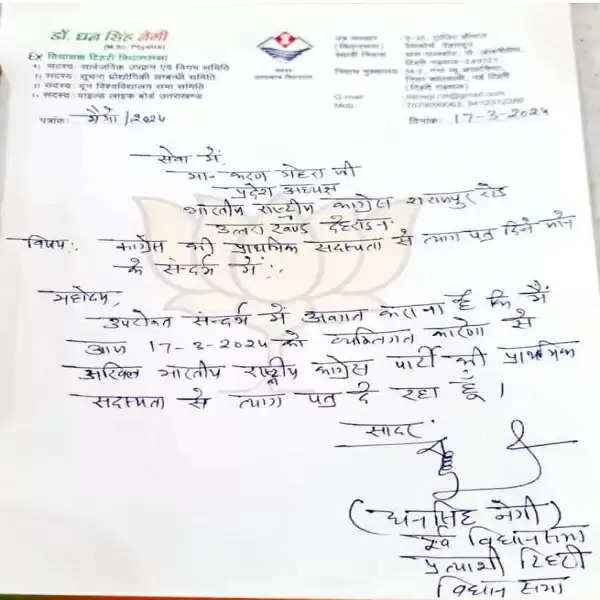 डॉ. धन सिंह नेगी
(M.Sc. Physics)
Ex विधायक टिहरी विधानसभा
सदस्य: सार्वजनिक उपक्रम एवं निगम समिति
सदस्य: सूचना प्रौद्योगिकी सम्बन्धी समिति
सदस्य: दून विश्वविद्यालय सभा समिति
सदस्य: वाइल्ड लाइफ बोर्ड उत्तराखण्ड
पत्रांक: मैमो/2024
दिनांक: 17-3-2024
सेवा में,
मा- करण माहरा जी
प्रदेश अध्यक्ष
भारतीय राष्ट्रीय कांग्रेस राजपुर रोड
उत्तराखण्ड देहरादून
विषय: कांग्रेस की प्राथमिक सदस्यता से त्याग पत्र दिने जाने
के सन्दर्भ में:,
महोदय,
उपरोक्त सन्दर्भ में अवगत कराना है कि मैं
आज 17-3-2024 को व्यक्तिगत कारणो से
अखिल भारतीय राष्ट्रीय कांग्रेस पार्टी की प्राथमिक
सदस्यता से त्याग पत्र दे रहा हूँ।
सादर
(धनसिंह नेगी)
पूर्व विधानसभा
प्रत्याशी टिहरी
विधान सभा